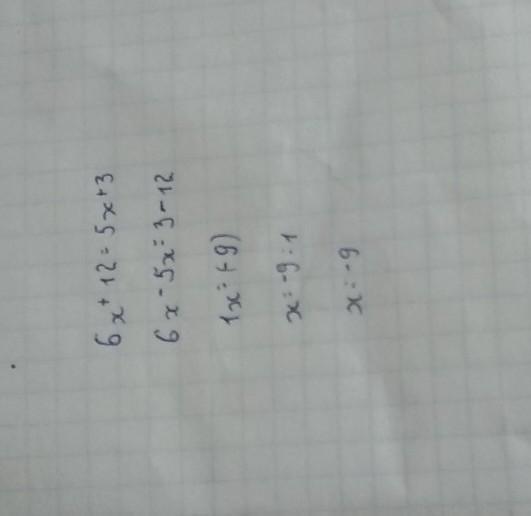 6x+12=5x+3
6x-5x=3-12
1x=(-9)
x=-9:1
x=-9